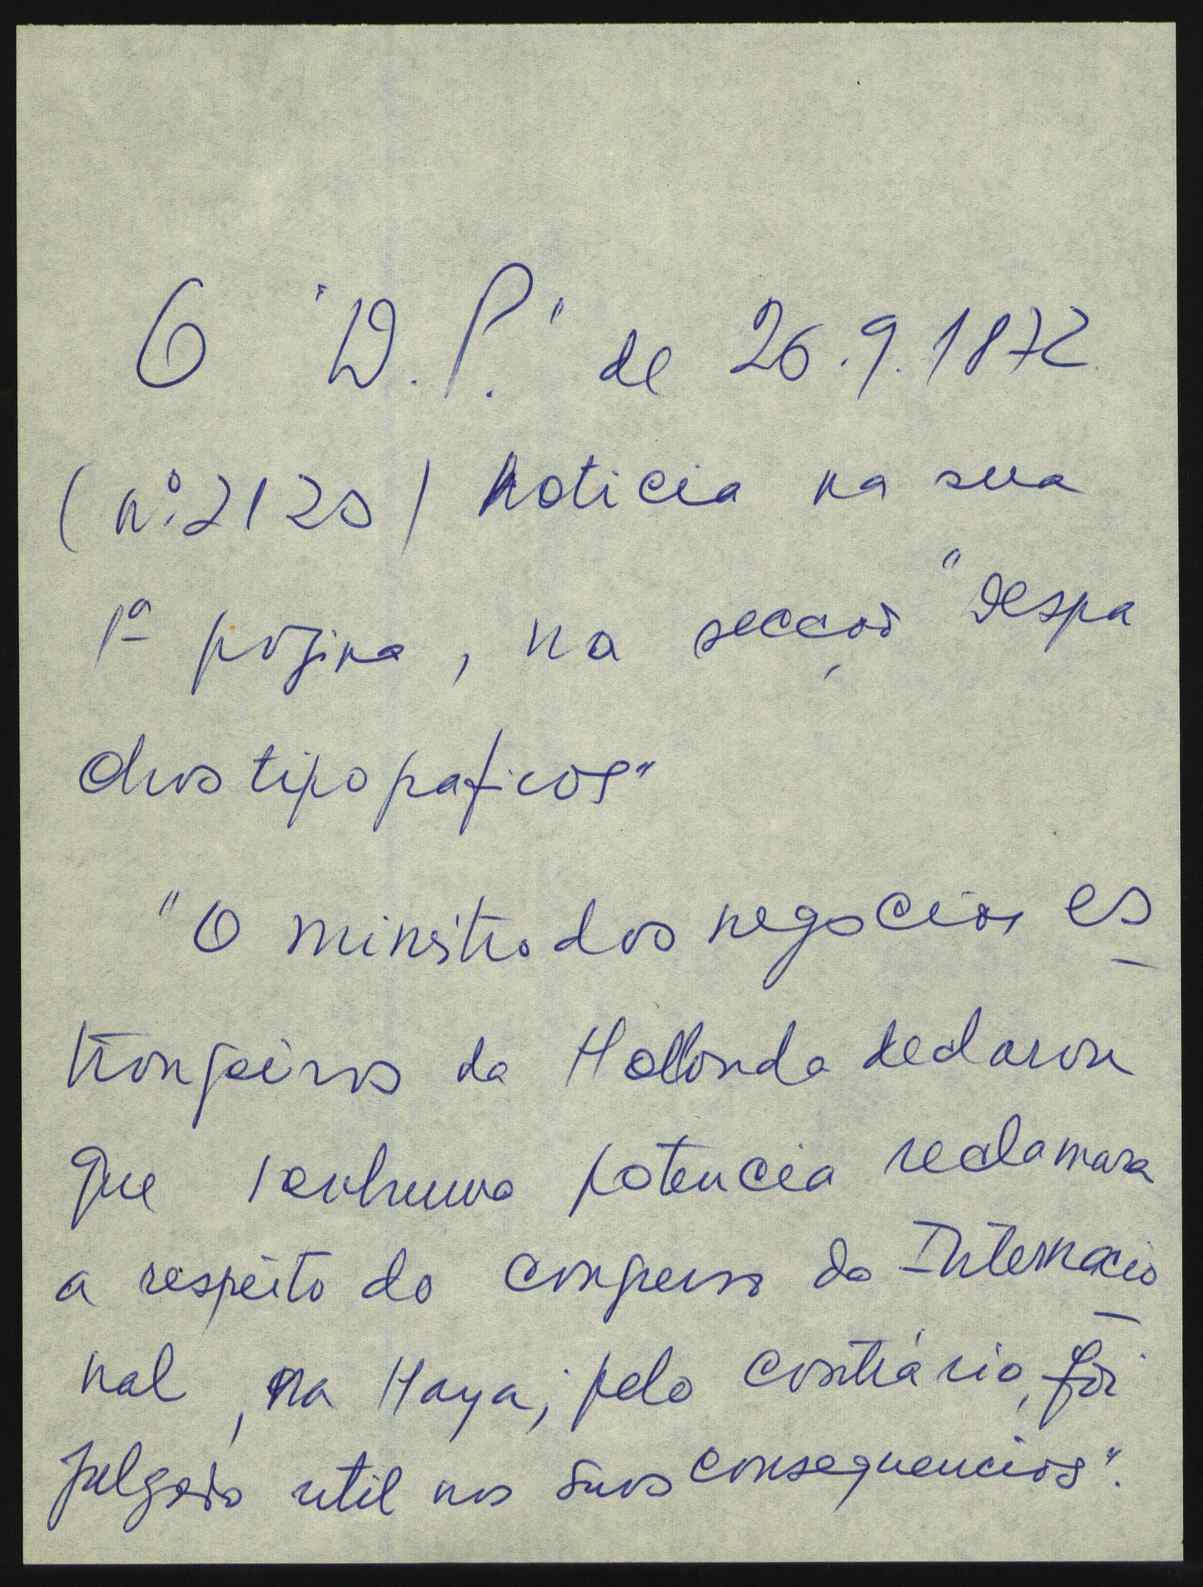 O "D. P." de 26.9.1872
(nº. 2120) Noticia na sua
1ª página, na secção "Despa
chos tipograficos"
"O ministro dos negocios es
trangeiros da Hollanda declarou
que nenhuma potencia reclamara
a respeito do congresso da Internacio
nal, na Haya; pelo contrário, foi
julgado util nas suas consequencias".